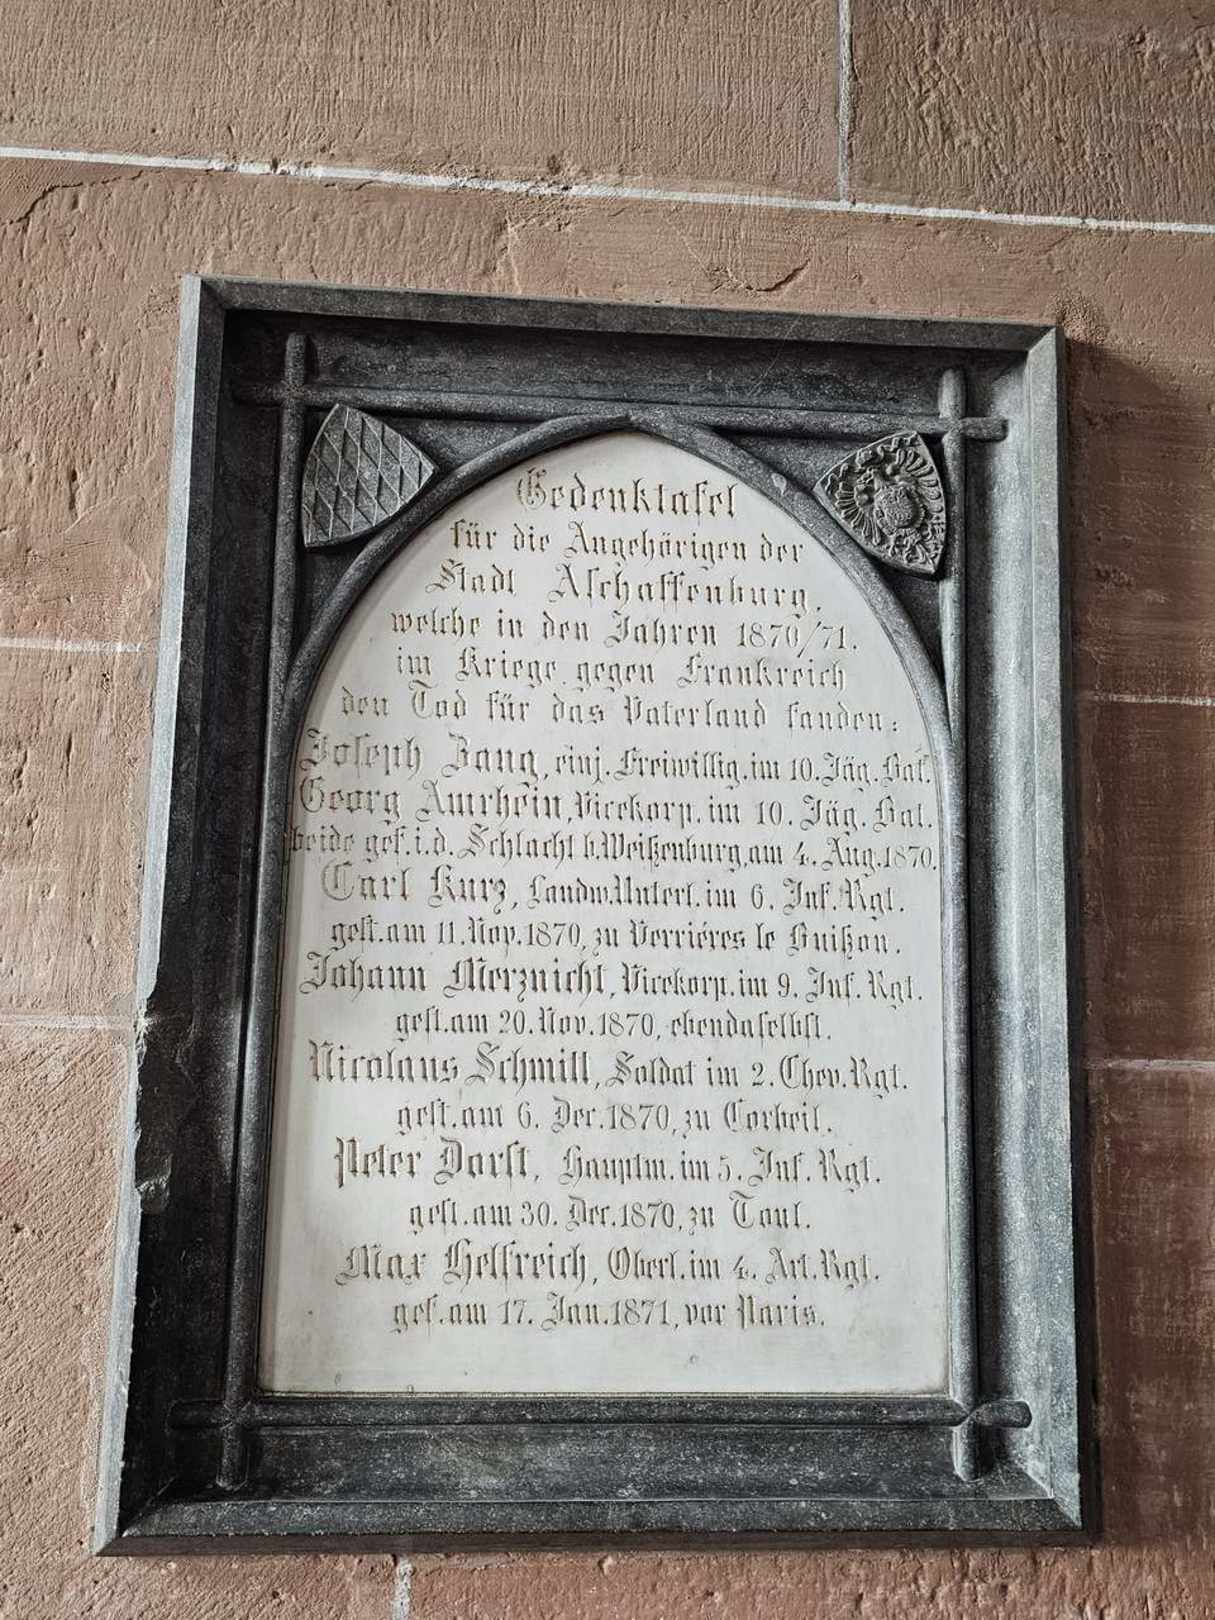 Gedenktafel
für die Angehörigen der
Stadt Aschaffenburg,
welche in den Jahren 1870/71.
im Kriege gegen Frankreich
den Tod für das Vaterland fanden:
Joseph Zang, einj. Freiwillig. im 10. Jäg. Bat.
Georg Amrhein, Vicekorp. im 10. Jäg. Bat.
beide gef. i. d. Schlacht b. Weißenburg, am 4. Aug. 1870.
Carl Kurz, Landw. Unterl. im 6. Inf. Rgt.
gest. am 11. Nov. 1870, zu Verriéres le Buißon.
Johann Merznicht, Vicekorp. im 9. Inf. Rgt.
gest. am 20. Nov. 1870, ebendaselbst.
Nicolaus Schmitt, Soldat im 2. Chev. Rgt.
gest. am 6. Dec. 1870, zu Corbeil.
Peter Dorst, Hauptm. im 5. Inf. Rgt.
gest. am 30. Dec. 1870, zu Toul.
Max Helfreich, Oberl. im 4. Art. Rgt.
gef. am 17. Jan. 1871, vor Paris.